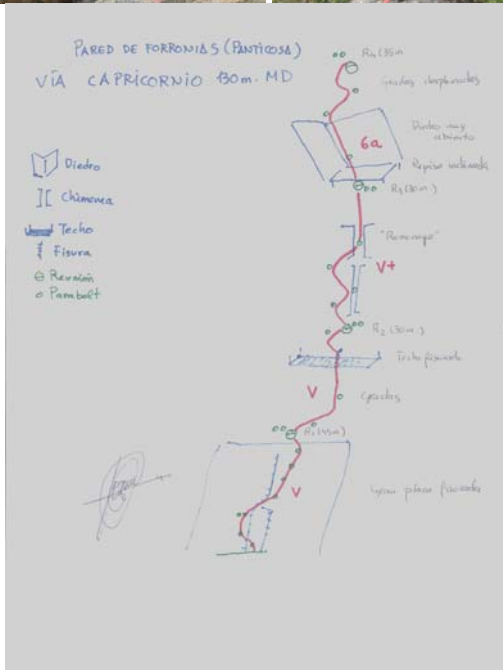 PARED DE FORRONIAS (PANTICOSA)
VÍA CAPRICORNIO 130m. MD
Diedro
Chimenea
Techo
Fisura
Reunión
Parabolt
R4 (35m
Gradas
Diedro muy
abierto
6a
Repisa inclinada
R3 (30m.)
V+
R2 (30m.)
Techo fisurado
V
Gradas
R1 (45m)
V
placa fisurada